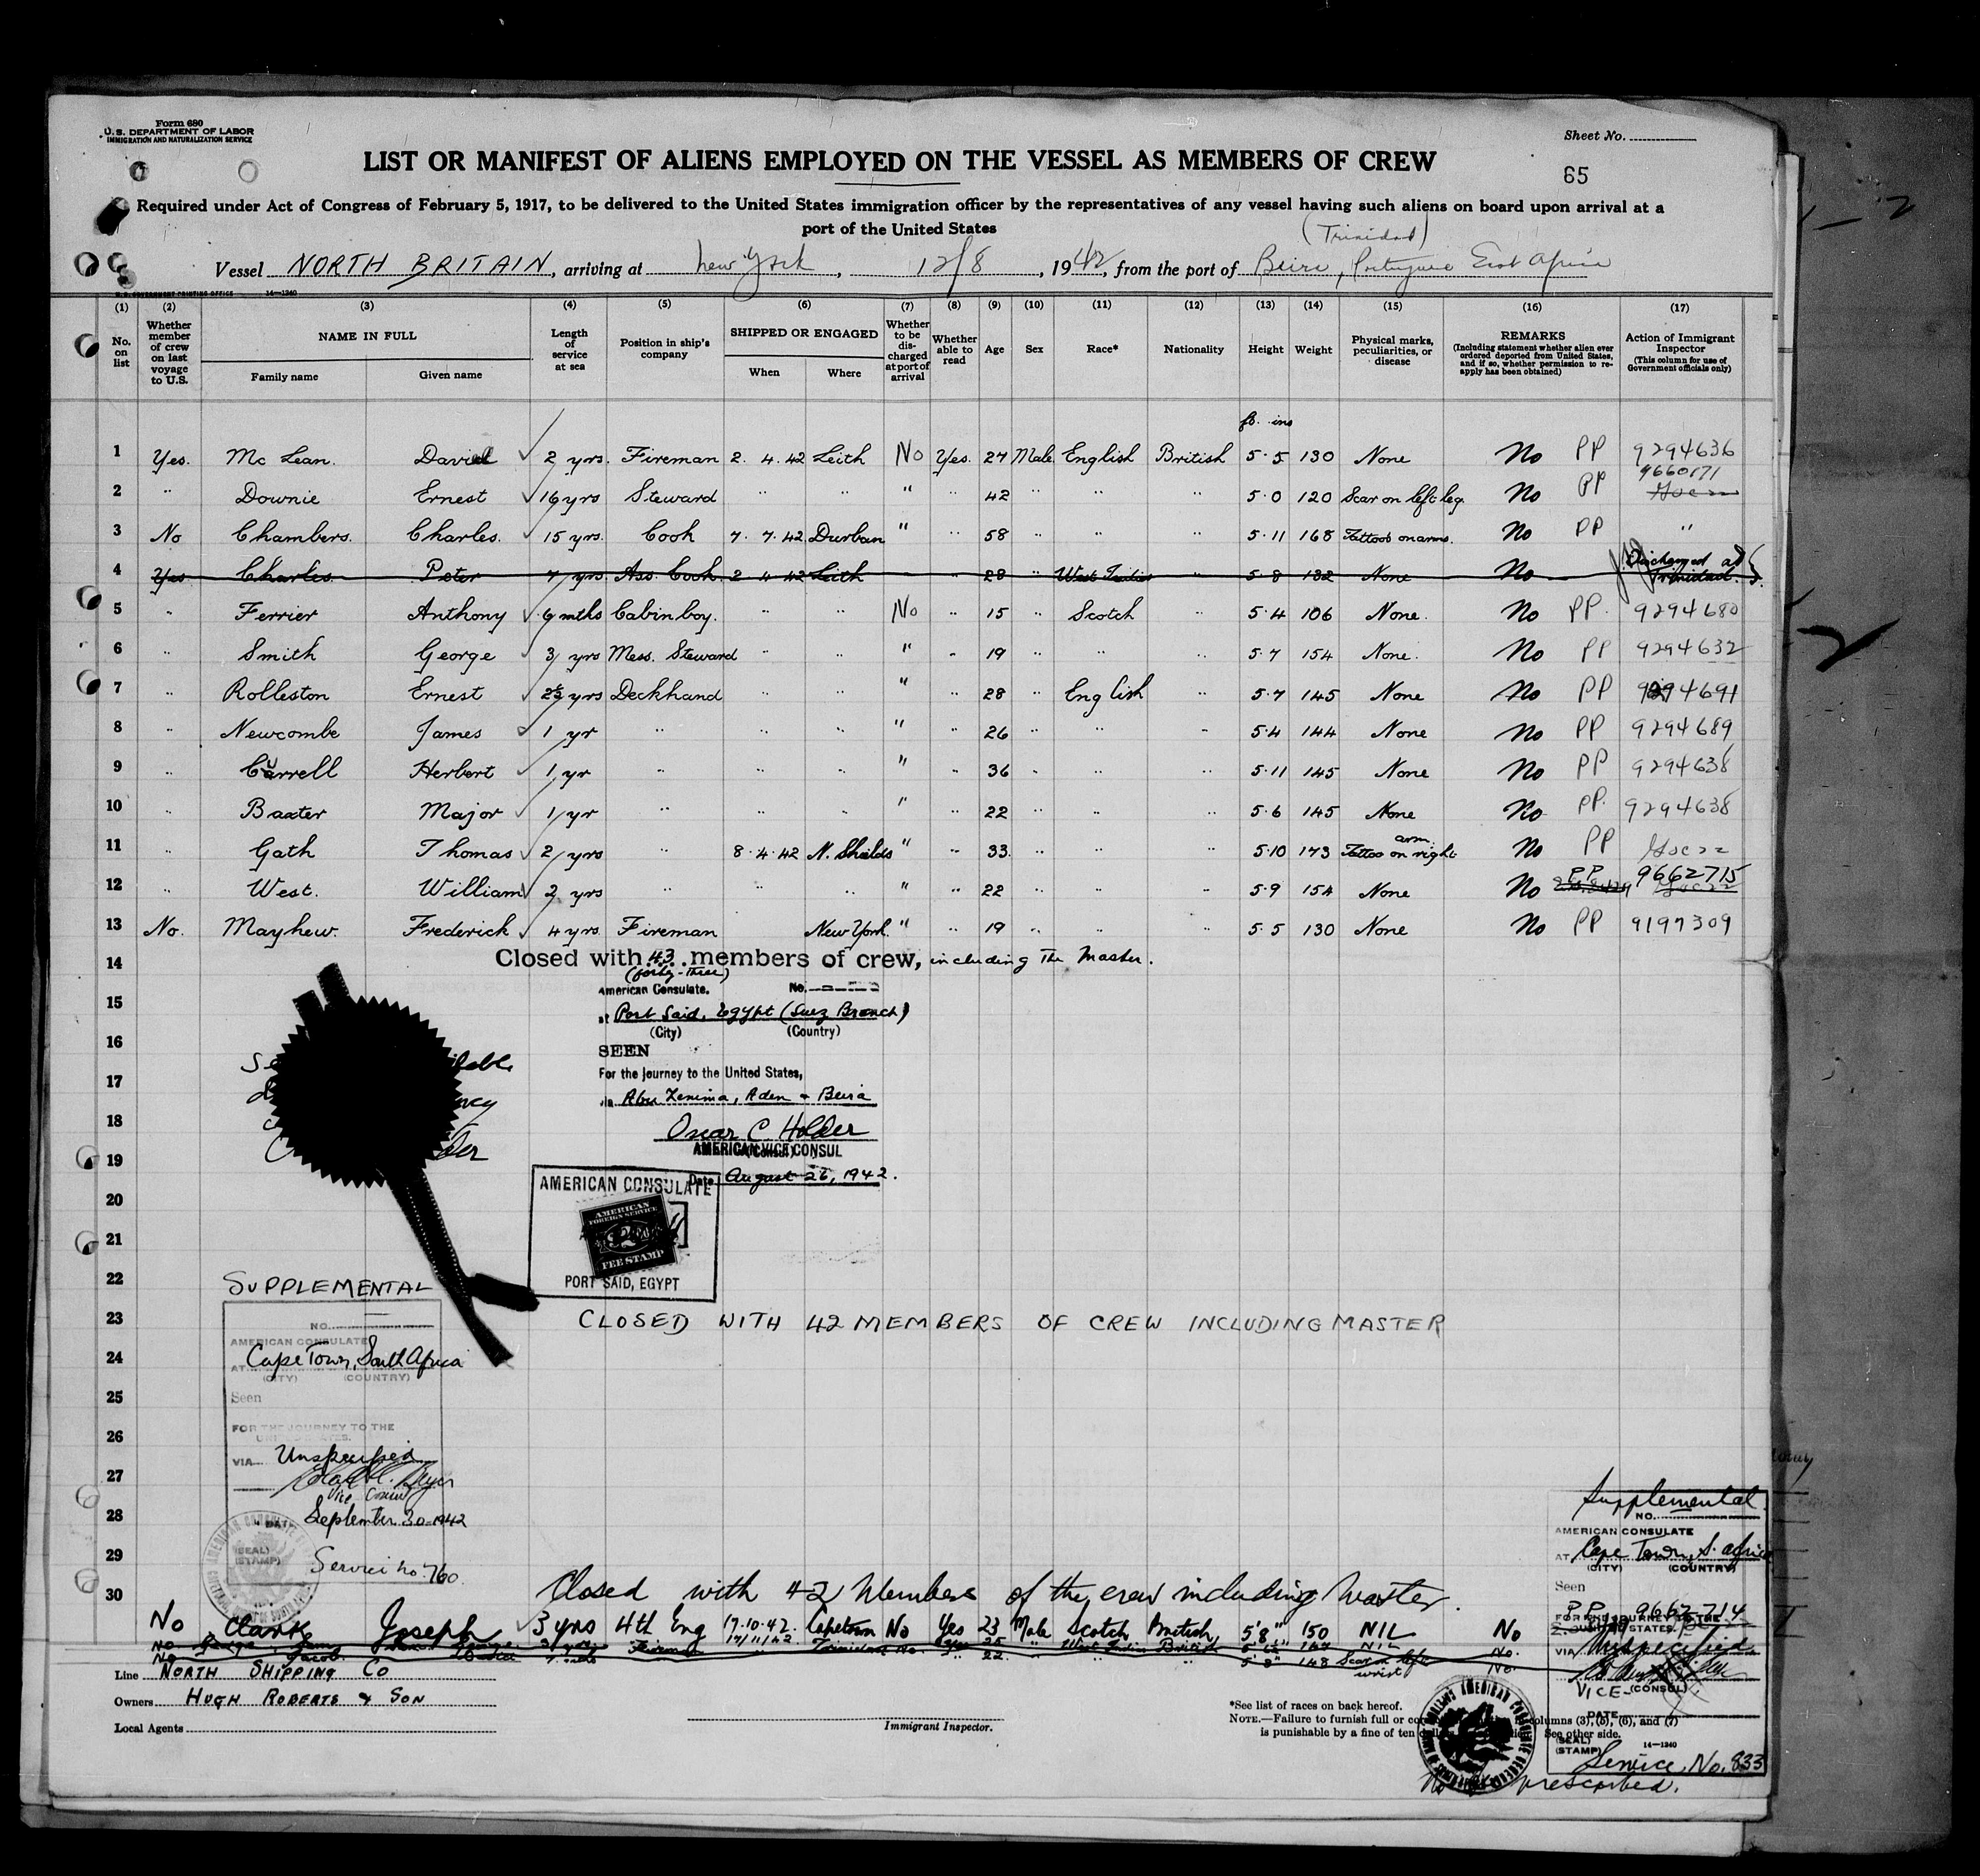 Form 680
U.S. DEPARTMENT OF LABOR
IMMIGRATION AND NATURALIZATION SERVICE
Sheet No.
LIST OR MANIFEST OF ALIENS EMPLOYED ON THE VESSEL AS MEMBERS OF CREW
65
Required under Act of Congress of February 5, 1917, to be delivered to the United States immigration officer by the representatives of any vessel having such aliens on board upon arrival at a
port of the United States
(Trinidad)
Vessel NORTH BRITAIN, arriving at New York, 12/8, 1942, from the port of Beira, Portuguese East Africa
U. S. GOVERNMENT PRINTING OFFICE 14—1240
(1) (2) (3) (4) (5) (6) (7) (8) (9) (10) (11) (12) (13) (14) (15) (16) (17)
No. on list
Whether member of crew on last voyage to U.S.
NAME IN FULL
Family name Given name
Length of service at sea
Position in ship's company
SHIPPED OR ENGAGED
When Where
Whether to be discharged at port of arrival
Whether able to read
Age
Sex
Race*
Nationality
Height
Weight
Physical marks, peculiarities, or disease
REMARKS
(Including statement whether alien ever ordered deported from United States, and if so, whether permission to reapply has been obtained)
Action of Immigrant Inspector
(This column for use of Government officials only)
ft. ins
1 Yes. Mc Lean. David 2 yrs. Fireman 2. 4. 42 Leith No Yes. 27 Male English British 5·5 130 None No PP 9294636
2 " Downie Ernest 16 yrs Steward " " " " 42 " " " 5·0 120 Scar on left leg. No PP 9660171
3 No Chambers. Charles. 15 yrs. Cook 7. 7. 42 Durban " " 58 " " " 5·11 168 Tattoos on arms. No PP "
4 Yes Charles Peter 7 yrs. Ass. Cook 2 4 42 Leith " 28 " West Indies " 5·8 132 None No Discharged at Trinidad.
5 " Ferrier Anthony 9 mths Cabin boy. " " No " 15 " Scotch " 5·4 106 None. No PP. 9294680
6 " Smith George 3 yrs Mess. Steward " " " " 19 " " " 5·7 154 None. No PP 9294632
7 " Rolleston Ernest 2½ yrs Deckhand " " " " 28 " English " 5·7 145 None No PP 9294691
8 " Newcombe James 1 yr " " " " " 26 " " " 5·4 144 None No PP 9294689
9 " Currell Herbert 1 yr " " " " " 36 " " " 5·11 145 None No PP 9294638
10 " Baxter Major 1 yr " " " " " 22 " " " 5·6 145 None No PP. 9294638
11 " Gath Thomas 2 yrs " 8·4·42 N. Shields " " 33. " " " 5·10 173 Tattoo on right arm No PP
12 " West. William 2 yrs " " " " " 22 " " " 5·9 154 None No PP 9662715
13 No. Mayhew. Frederick 4 yrs. Fireman New York. " " 19 " " " 5·5 130 None No PP 9197309
14 Closed with 43 members of crew, including The Master.
(forty-three)
American Consulate. No.
15 at Port Said, Egypt (Suez Branch)
(City) (Country)
16 SEEN
17 For the journey to the United States,
via Abu Zenima, Aden & Beira
18 Oscar C Holder
19 AMERICAN VICE CONSUL
Date August 26, 1942.
20 AMERICAN CONSULATE
AMERICAN FOREIGN SERVICE
21 FEE STAMP
22 PORT SAID, EGYPT
SUPPLEMENTAL
23 CLOSED WITH 42 MEMBERS OF CREW INCLUDING MASTER
NO.
AMERICAN CONSULATE
24 AT Cape Town, South Africa
(CITY) (COUNTRY)
25 Seen
26 FOR THE JOURNEY TO THE UNITED STATES.
VIA Unspecified
27
Vice Consul
28 September 30 1942
29 (SEAL)
(STAMP)
Service no. 760.
30 Closed with 42 Members of the crew including Master.
No Clark Joseph 3 yrs 4th Eng 17.10.42. Capetown No Yes 23 Male Scotch British 5'8" 150 NIL No
Line NORTH SHIPPING CO
Owners HUGH ROBERTS & SON
Local Agents
Immigrant Inspector.
*See list of races on back hereof.
NOTE.—Failure to furnish full or columns (3), (5), (6), and (7)
is punishable by a fine of ten See other side.
14—1240
Supplemental
NO.
AMERICAN CONSULATE
AT Cape Town, S. Africa
(CITY) (COUNTRY)
Seen
PP 9662714
FOR THE JOURNEY TO THE
UNITED STATES.
VIA Unspecified
VICE-(CONSUL)
DATE
(SEAL)
(STAMP)
Service No. 833
No prescribed.